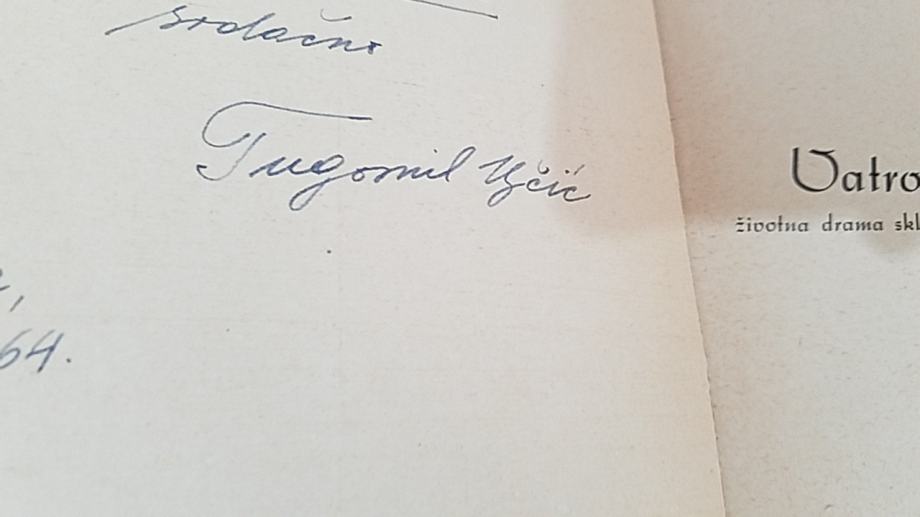 srdačno
Tugomil Ujčić
64.
Vatro
životna drama skl